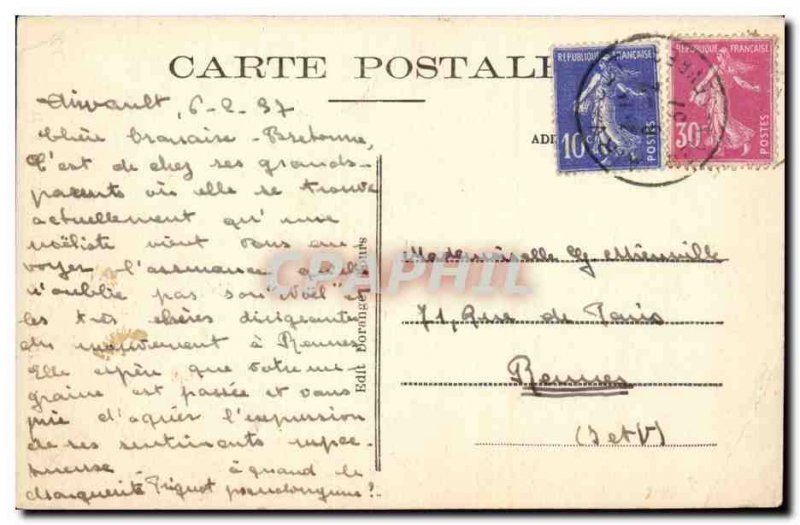 CARTE POSTALE
REPUBLIQUE FRANÇAISE
10c
POSTES
REPUBLIQUE FRANÇAISE
30c
POSTES
Airvault, 6-2-37
Chère
C'est de chez ses grands-
parents où elle se trouve
actuellement qu'une
noëliste vient vous en-
voyer l'assurance qu'elle
n'oublie pas son "Noël" et
les très chères dirigeantes
du mouvement à Rennes
Elle espère que votre mi-
graine est passée et vous
prie d'agréer l'expression
de ses sentiments respec-
tueuse. à quand le
Marguerite ?
Edit Boranger Tours
CPAPHIL
Mademoiselle G.
71, Rue de Paris
Rennes
(I et V)